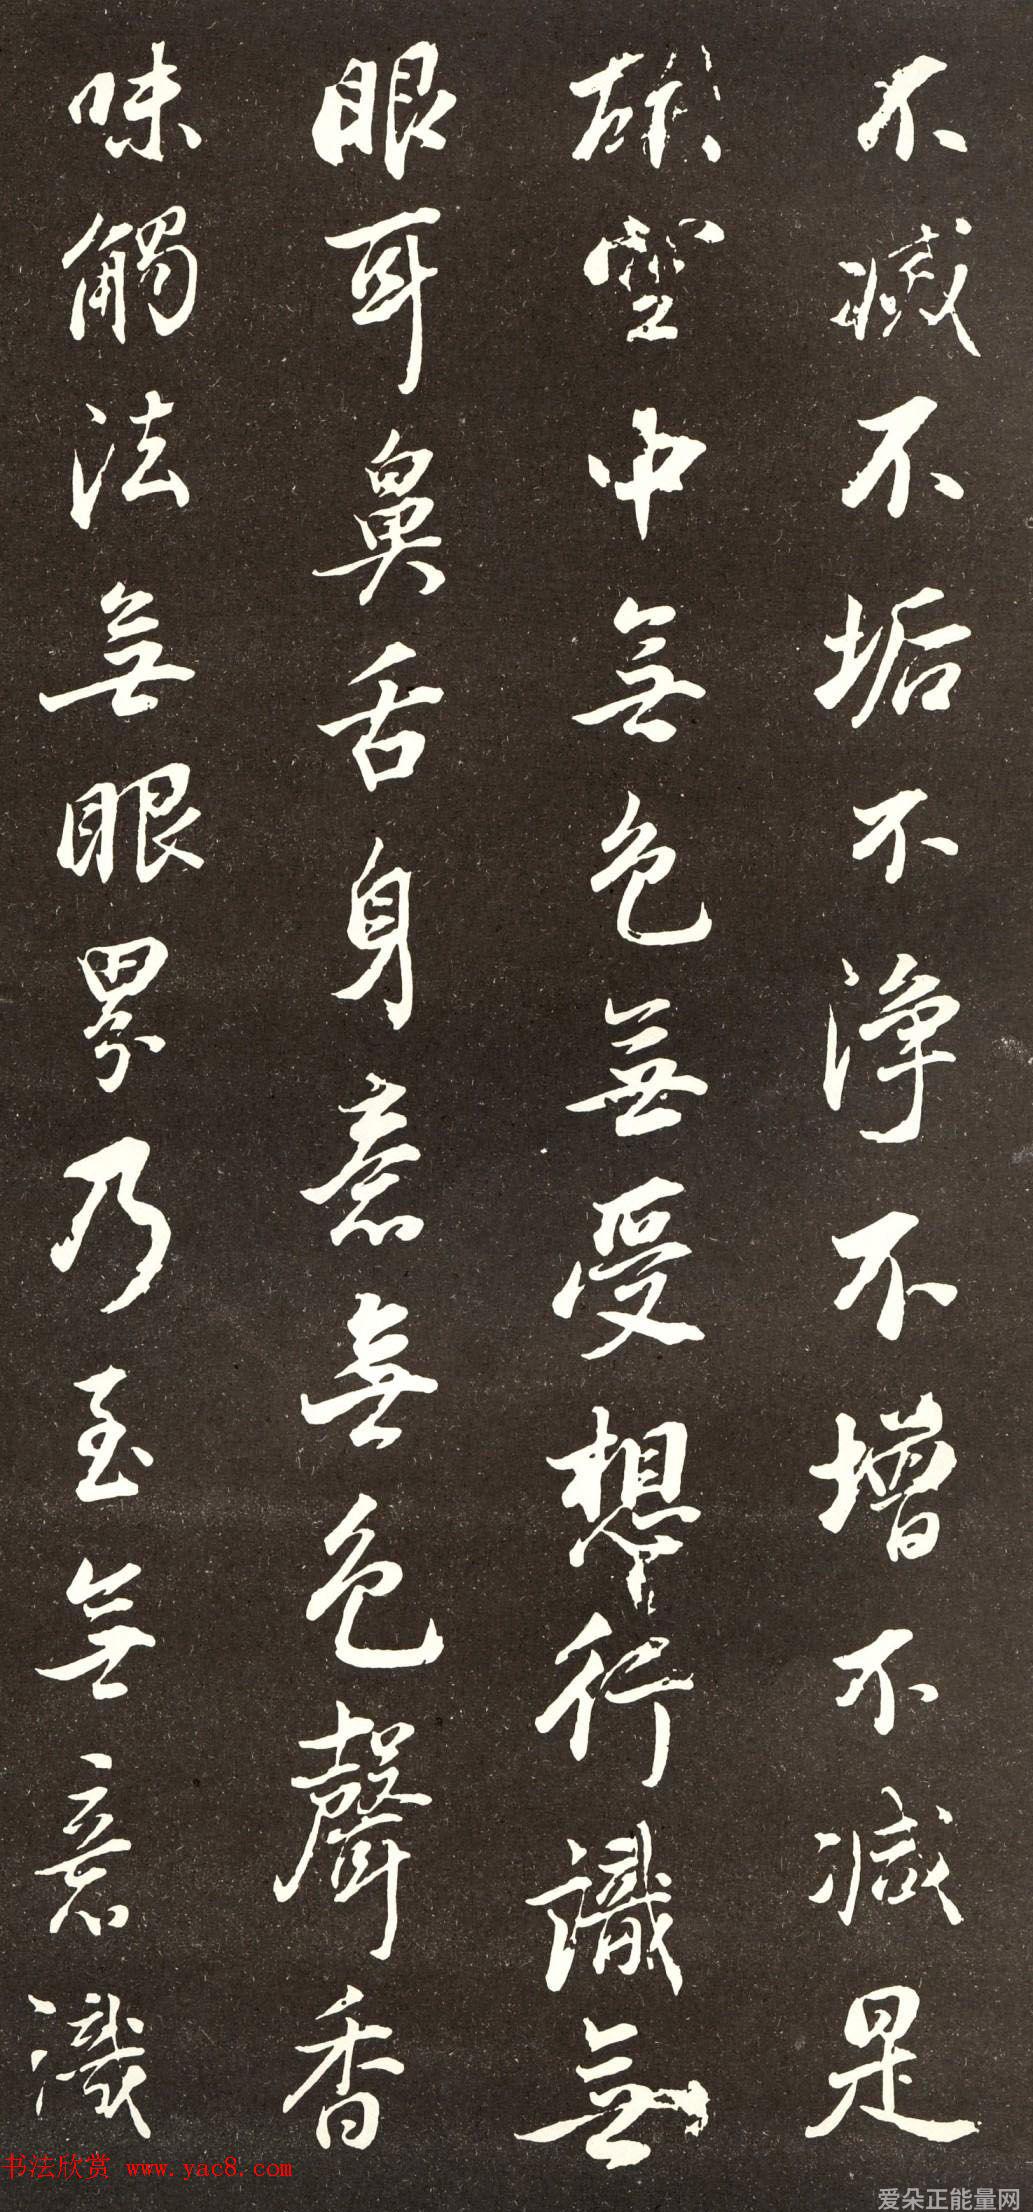 不減不垢不淨不增不減是
故空中無色無受想行識無
眼耳鼻舌身意無色聲香
味觸法無眼界乃至無意識
书法欣赏 www.yac8.com
爱朵正能量网